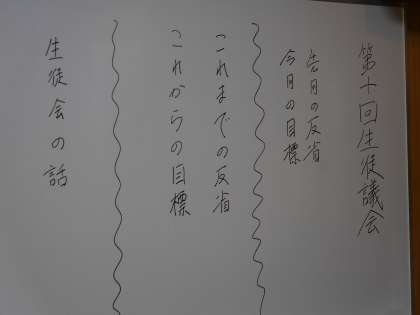 第十回生徒議会
先月の反省
今月の目標
これまでの反省
これからの目標
生徒会の話